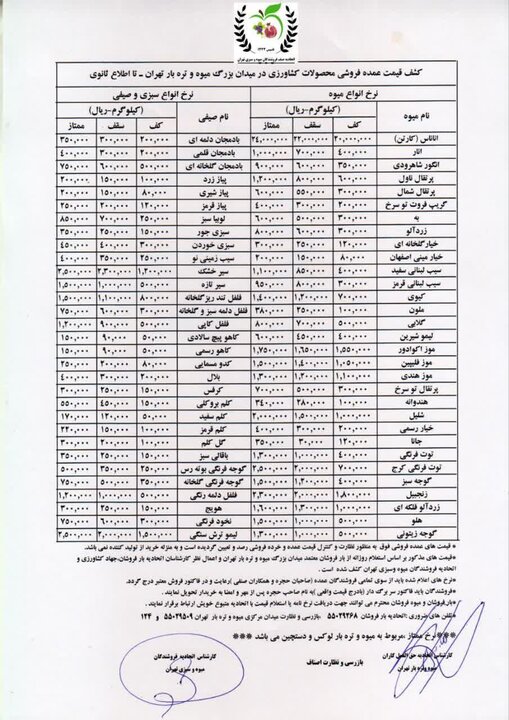 اتحادیه صنف فروشندگان میوه و سبزی تهران
کشف قیمت عمده فروشی محصولات کشاورزی در میدان بزرگ میوه و تره بار تهران ـ تا اطلاع ثانوی
نرخ انواع میوه نرخ انواع سبزی و صیفی
نام میوه (کیلوگرم-ریال) نام صیفی (کیلوگرم-ریال)
کف سقف ممتاز کف سقف ممتاز
اناناس (کارتن) ۲۰,۰۰۰,۰۰۰ ۲۲,۰۰۰,۰۰۰ ۲۴,۰۰۰,۰۰۰ بادمجان دلمه ای ۲۰۰,۰۰۰ ۳۰۰,۰۰۰ ۳۵۰,۰۰۰
انار ۴۰۰,۰۰۰ ۷۰۰,۰۰۰ ۱,۰۰۰,۰۰۰ بادمجان قلمی ۲۰۰,۰۰۰ ۳۰۰,۰۰۰ ۴۰۰,۰۰۰
انگور شاهرودی ۳۵۰,۰۰۰ ۶۰۰,۰۰۰ ۹۰۰,۰۰۰ بادمجان گلخانه ای ۵۰۰,۰۰۰ ۶۰۰,۰۰۰ ۷۵۰,۰۰۰
پرتقال ناول ۶۰۰,۰۰۰ ۸۰۰,۰۰۰ ۱,۲۰۰,۰۰۰ پیاز زرد ۱۰۰,۰۰۰ ۱۵۰,۰۰۰ ۲۰۰,۰۰۰
پرتقال شمال ۳۰۰,۰۰۰ ۵۵۰,۰۰۰ ۶۰۰,۰۰۰ پیاز شیری ۸۰,۰۰۰ ۱۵۰,۰۰۰ ۲۰۰,۰۰۰
گریپ فروت تو سرخ ۲۰۰,۰۰۰ ۳۰۰,۰۰۰ ۴۰۰,۰۰۰ پیاز قرمز ۱۲۰,۰۰۰ ۲۰۰,۰۰۰ ۲۵۰,۰۰۰
به ۳۰۰,۰۰۰ ۵۰۰,۰۰۰ ۶۰۰,۰۰۰ لوبیا سبز ۲۵۰,۰۰۰ ۷۰۰,۰۰۰ ۸۵۰,۰۰۰
زردآلو ۴۰۰,۰۰۰ ۶۰۰,۰۰۰ ۸۰۰,۰۰۰ سبزی جور ۱۵۰,۰۰۰ ۲۵۰,۰۰۰ ۳۵۰,۰۰۰
خیارگلخانه ای ۱۲۰,۰۰۰ ۲۵۰,۰۰۰ ۳۰۰,۰۰۰ سبزی خوردن ۳۰۰,۰۰۰ ۴۰۰,۰۰۰ ۴۵۰,۰۰۰
خیار مینی اصفهان ۸۰,۰۰۰ ۱۵۰,۰۰۰ ۲۰۰,۰۰۰ سیب زمینی نو ۲۵۰,۰۰۰ ۳۵۰,۰۰۰ ۴۰۰,۰۰۰
سیب لبنانی سفید ۴۰۰,۰۰۰ ۸۵۰,۰۰۰ ۱,۱۰۰,۰۰۰ سیر خشک ۱,۲۰۰,۰۰۰ ۲,۳۰۰,۰۰۰ ۲,۵۰۰,۰۰۰
سیب لبنانی قرمز ۳۰۰,۰۰۰ ۸۰۰,۰۰۰ ۹۵۰,۰۰۰ سیر تازه ۵۰۰,۰۰۰ ۱,۰۰۰,۰۰۰ ۱,۵۰۰,۰۰۰
کیوی ۷۰۰,۰۰۰ ۱,۲۰۰,۰۰۰ ۱,۴۰۰,۰۰۰ فلفل تند ریزگلخانه ۸۰۰,۰۰۰ ۱,۱۰۰,۰۰۰ ۱,۵۰۰,۰۰۰
ملون ۱۰۰,۰۰۰ ۲۵۰,۰۰۰ ۳۸۰,۰۰۰ فلفل دلمه سبز و گلخانه ۳۰۰,۰۰۰ ۶۰۰,۰۰۰ ۷۵۰,۰۰۰
گلابی ۵۰۰,۰۰۰ ۷۰۰,۰۰۰ ۸۰۰,۰۰۰ فلفل کاپی ۵۰۰,۰۰۰ ۹۰۰,۰۰۰ ۱,۲۰۰,۰۰۰
لیمو شیرین ۴۰۰,۰۰۰ ۴۵۰,۰۰۰ ۶۰۰,۰۰۰ کاهو پیچ سالادی ۵۰,۰۰۰ ۹۰,۰۰۰ ۱۵۰,۰۰۰
موز اکوادور ۱,۵۵۰,۰۰۰ ۱,۶۵۰,۰۰۰ ۱,۷۵۰,۰۰۰ کاهو رسمی ۵۰,۰۰۰ ۹۰,۰۰۰ ۱۵۰,۰۰۰
موز فلیپین ۱,۳۵۰,۰۰۰ ۱,۴۰۰,۰۰۰ ۱,۵۰۰,۰۰۰ کدو مسمایی ۸۰,۰۰۰ ۲۰۰,۰۰۰ ۲۵۰,۰۰۰
موز هندی ۱,۱۰۰,۰۰۰ ۱,۲۰۰,۰۰۰ ۱,۳۰۰,۰۰۰ بلال ۲۰۰,۰۰۰ ۳۰۰,۰۰۰ ۴۰۰,۰۰۰
پرتقال تو سرخ ۳۰۰,۰۰۰ ۵۰۰,۰۰۰ ۷۰۰,۰۰۰ کرفس ۱۵۰,۰۰۰ ۲۵۰,۰۰۰ ۳۰۰,۰۰۰
هندوانه ۱۰۰,۰۰۰ ۲۸۰,۰۰۰ ۳۴۰,۰۰۰ کلم بروکلی ۱۵۰,۰۰۰ ۴۵۰,۰۰۰ ۵۵۰,۰۰۰
شلیل ۱,۰۰۰,۰۰۰ ۱,۵۰۰,۰۰۰ ۲,۰۰۰,۰۰۰ کلم سفید ۵۰,۰۰۰ ۱۲۰,۰۰۰ ۱۷۰,۰۰۰
خیار رسمی ۲۰۰,۰۰۰ ۳۰۰,۰۰۰ ۴۰۰,۰۰۰ کلم قرمز ۱۰۰,۰۰۰ ۱۵۰,۰۰۰ ۲۲۰,۰۰۰
جانا ۱۲۰,۰۰۰ ۳۰,۰۰۰ ۳۵۰,۰۰۰ گل کلم ۱۰۰,۰۰۰ ۲۰۰,۰۰۰ ۳۰۰,۰۰۰
توت فرنگی ۴۰۰,۰۰۰ ۱,۰۰۰,۰۰۰ ۱,۳۰۰,۰۰۰ باقالی سبز ۱۵۰,۰۰۰ ۲۵۰,۰۰۰ ۳۵۰,۰۰۰
توت فرنگی کرج ۷۰۰,۰۰۰ ۲,۰۰۰,۰۰۰ ۲,۵۰۰,۰۰۰ گوجه فرنگی بوته رس ۲۵۰,۰۰۰ ۳۵۰,۰۰۰ ۵۰۰,۰۰۰
گوجه سبز ۴۰۰,۰۰۰ ۱,۲۰۰,۰۰۰ ۱,۵۰۰,۰۰۰ گوجه فرنگی گلخانه ۳۵۰,۰۰۰ ۵۰۰,۰۰۰ ۷۵۰,۰۰۰
زنجبیل ۱,۸۰۰,۰۰۰ ۲,۰۰۰,۰۰۰ ۲,۳۰۰,۰۰۰ فلفل دلمه رنگی ۵۰۰,۰۰۰ ۱,۰۰۰,۰۰۰ ۱,۲۰۰,۰۰۰
زردآلو فلکه ای ۱,۰۰۰,۰۰۰ ۱,۳۰۰,۰۰۰ ۱,۶۰۰,۰۰۰ هویج ۱۵۰,۰۰۰ ۲۵۰,۰۰۰ ۳۰۰,۰۰۰
هلو ۵۰۰,۰۰۰ ۱,۰۰۰,۰۰۰ ۱,۵۰۰,۰۰۰ نخود فرنگی ۳۰۰,۰۰۰ ۶۰۰,۰۰۰ ۷۵۰,۰۰۰
گوجه زیتونی ۵۰۰,۰۰۰ ۹۰۰,۰۰۰ ۱,۳۰۰,۰۰۰ لیمو ترش سنگی ۱,۵۰۰,۰۰۰ ۲,۰۰۰,۰۰۰ ۲,۵۰۰,۰۰۰
*قیمت های عمده فروشی فوق به منظور نظارت و کنترل قیمت عمده و خرده فروشی رصد و تعیین گردیده است و به منزله خرید از تولید کننده نمی باشد.
*قیمت های مذکور بر اساس استعلام روزانه از بار فروشان معتمد میدان بزرگ میوه و تره بار تهران و اعمال نظر کارشناسان اتحادیه بار فروشان،جهاد کشاورزی و
اتحادیه فروشندگان میوه وسبزی تهران کشف شده است .
*نرخ های اعلام شده باید از سوی تمامی فروشندگان عمده (صاحبان حجره و همکاران صنفی )رعایت و در فاکتور فروش معتبر درج گردد.
*فروشندگان باید فاکتور سر برگ دار (بادرج قیمت واقعی )به نام صاحب حجره پس از مهر و امضا به خریدار تحویل نمایند.
*بارفروشان و میوه فروشان محترم می توانند جهت دریافت نرخ نامه یا استعلام قیمت با اتحادیه متبوع خویش ارتباط برقرار نمایند.
*تلفن های ضروری :اتحادیه بار فروشان ۵۵۰۲۹۲۶۸ -بازرسی و نظارت میدان مرکزی میوه و تره بار تهران ۵۵۰۲۹۵۰۹ و ۱۲۴
***نرخ ممتاز ،مربوط به میوه و تره بار لوکس و دستچین می باشد ***
کارشناس اتحادیه حق العمل کاران بازرسی و نظارت اصناف کارشناس اتحادیه فروشندگان
میوه وتره بار تهران میوه و سبزی تهران